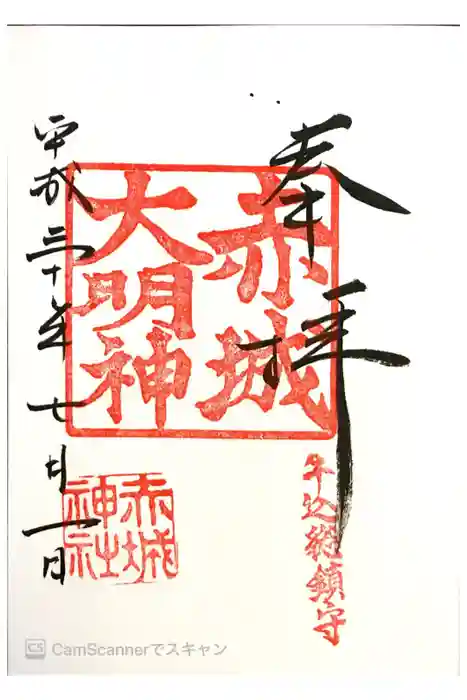 奉拝
赤城
大明神
牛込総鎮守
赤城
神社
平成三十年七月一日
CS CamScannerでスキャン